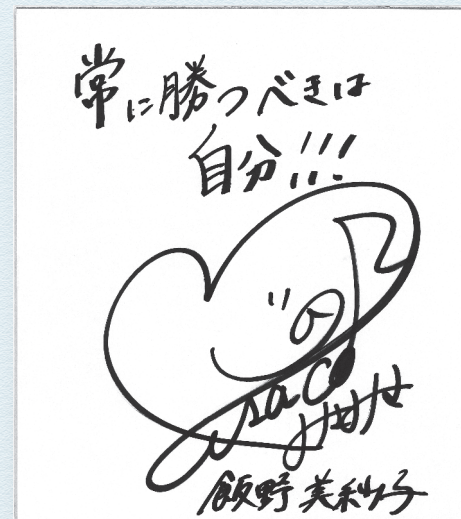 常に勝つべきは
自分!!!
飯野美紗子